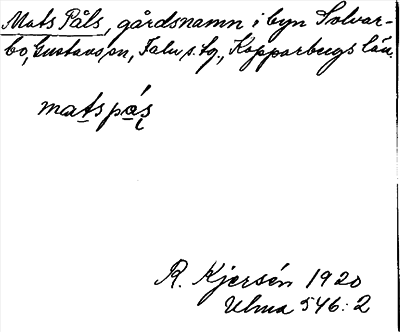 Mats Påls, gårdsnamn i byn Solvar-
bo, Gustavs sn, Falu s. tg., Kopparbergs län.
matspás̨
R. Kjersén 1920
Ulma 546:2